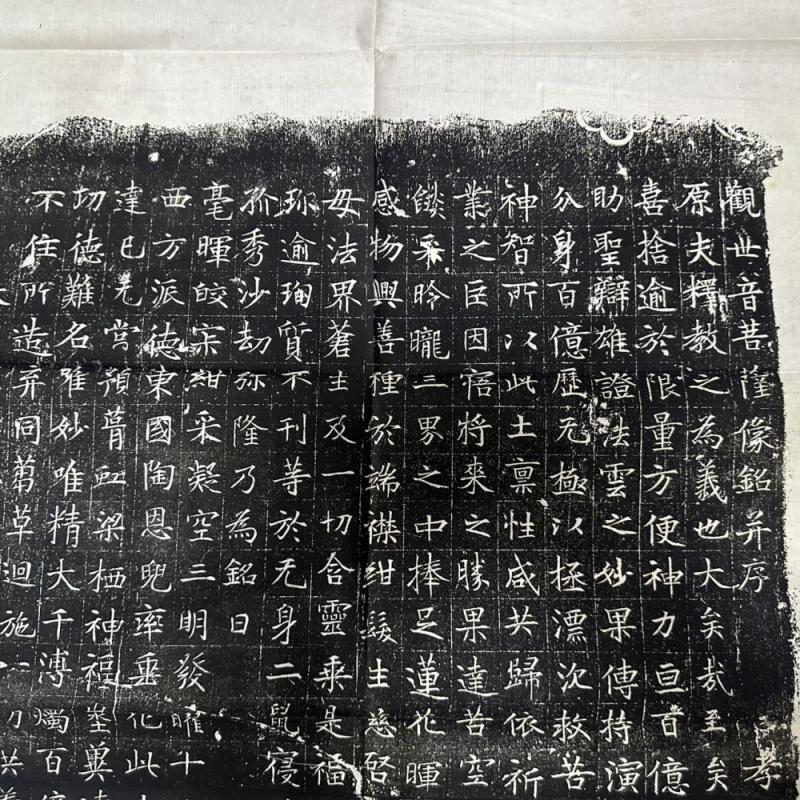 觀世音菩薩像銘并序 孝
原夫釋教之為義也大矣哉至矣
喜捨逾於限量方便神力亘百億
助聖辯雄證法雲之妙果傳持演
分身百億歷无極以極漂次救苦
神智所以此土禀性咸共歸依祈
業之臣因寤將來之勝果達苦空
餤采昤曨三界之中捧足蓮花暉
感物興善種於端襟紺髮生慈啓
母法界蒼生及一切含靈乘是福
珎逾珣質不刊等於无身二鼠寑
孤秀沙劫弥隆乃為銘曰
毫暉皎宗紺采凝空三明發曜十
西方派德東國陶恩兜率垂化此
達巳无嘗預蕢虹梁栖神福
切德難名唯妙唯精大千溥燭百億
不住所造弃同蒭草迴施一切共